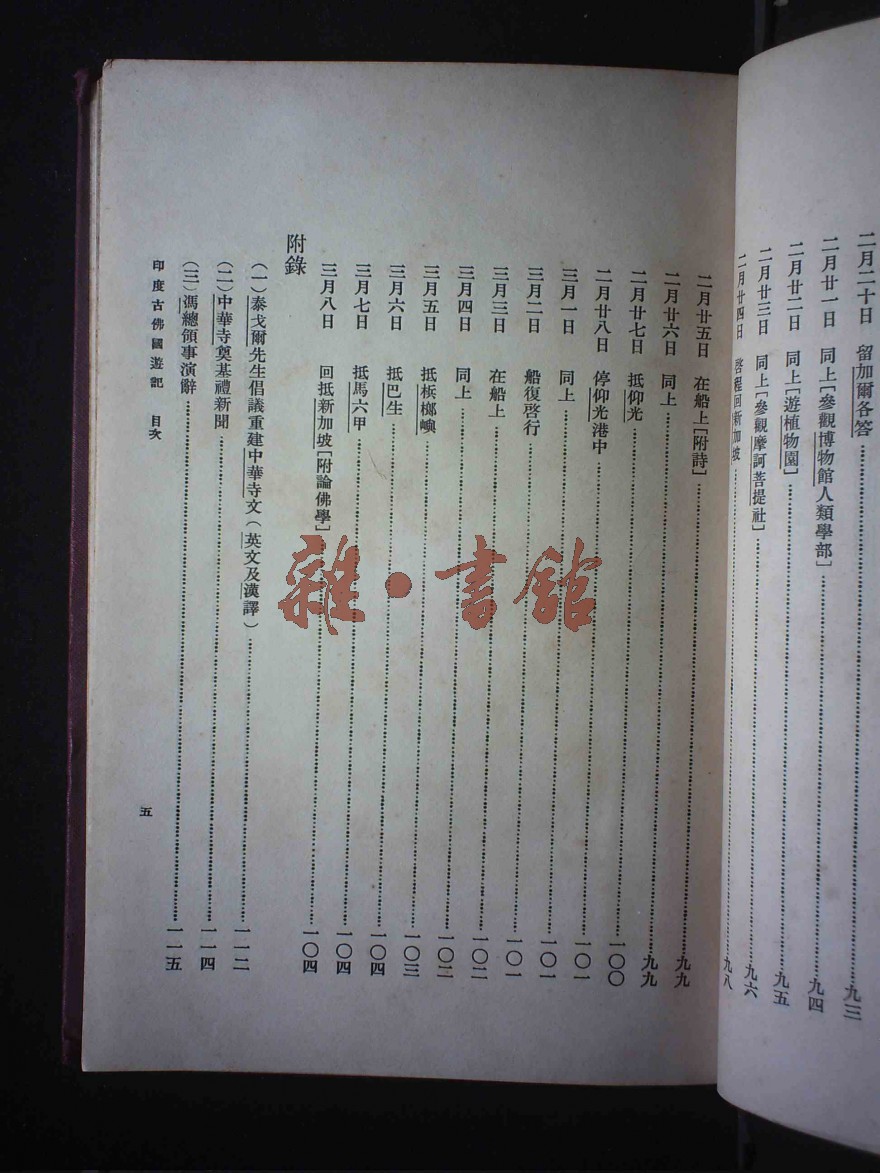 二月二十日　留加爾各答……九三
二月廿一日　同上［參觀博物館人類學部］……九四
二月廿二日　同上［遊植物園］……九五
二月廿三日　同上［參觀摩訶菩提社］……九六
二月廿四日　啓程回新加坡……九八
二月廿五日　在船上［附詩］……九九
二月廿六日　同上……九九
二月廿七日　抵仰光……一〇〇
二月廿八日　停仰光港中……一〇一
三月一日　同上……一〇一
三月二日　船復啓行……一〇一
三月三日　在船上……一〇二
三月四日　同上……一〇二
三月五日　抵梹榔嶼……一〇三
三月六日　抵巴生……一〇四
三月七日　抵馬六甲……一〇四
三月八日　回抵新加坡［附論佛學］……一〇四
附錄
（一）泰戈爾先生倡議重建中華寺文（英文及漢譯）……一一二
（二）中華寺奠基禮新聞……一一四
（三）馮總領事演辭……一一五
印度古佛國遊記　目次
五
雜·書館